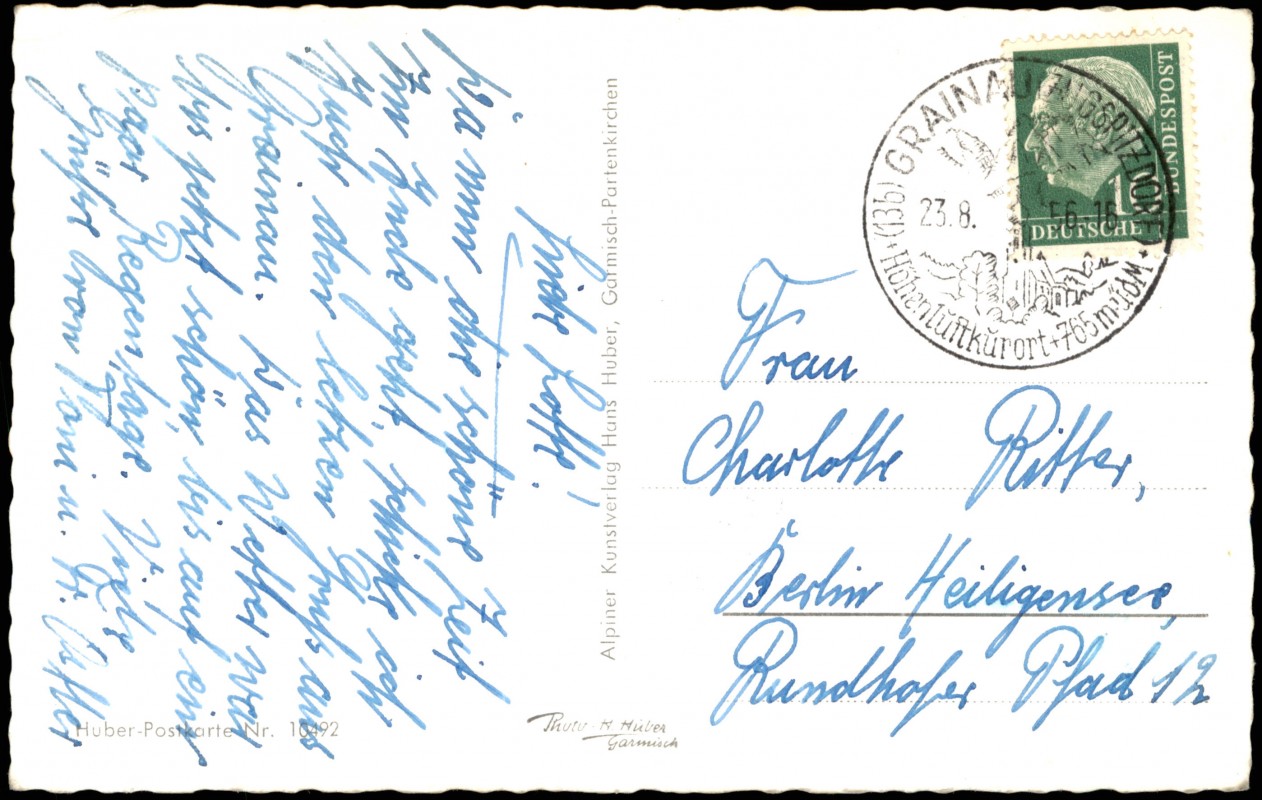 Liebe Lotte!
Da nun die schöne Zeit
zur Ende geht, schicke ich
Euch den letzten Gruß aus
Grainau. Das Wetter war
bis jetzt schön, bis auf ein
paar Regentage. Viele
Grüße von u.
Alpiner Kunstverlag Hans Huber, Garmisch-Partenkirchen
Huber-Postkarte Nr. 10492
Photo-H. Huber
Garmisch
(13b) GRAINAU (ZUGSPITZDORF)
23.8. 56-16
Höhenluftkurort + 765 m ü.d.M.
10
DEUTSCHE
BUNDESPOST
Frau
Charlotte Ritter,
Berlin Heiligensee,
Rundhofer Pfad 12